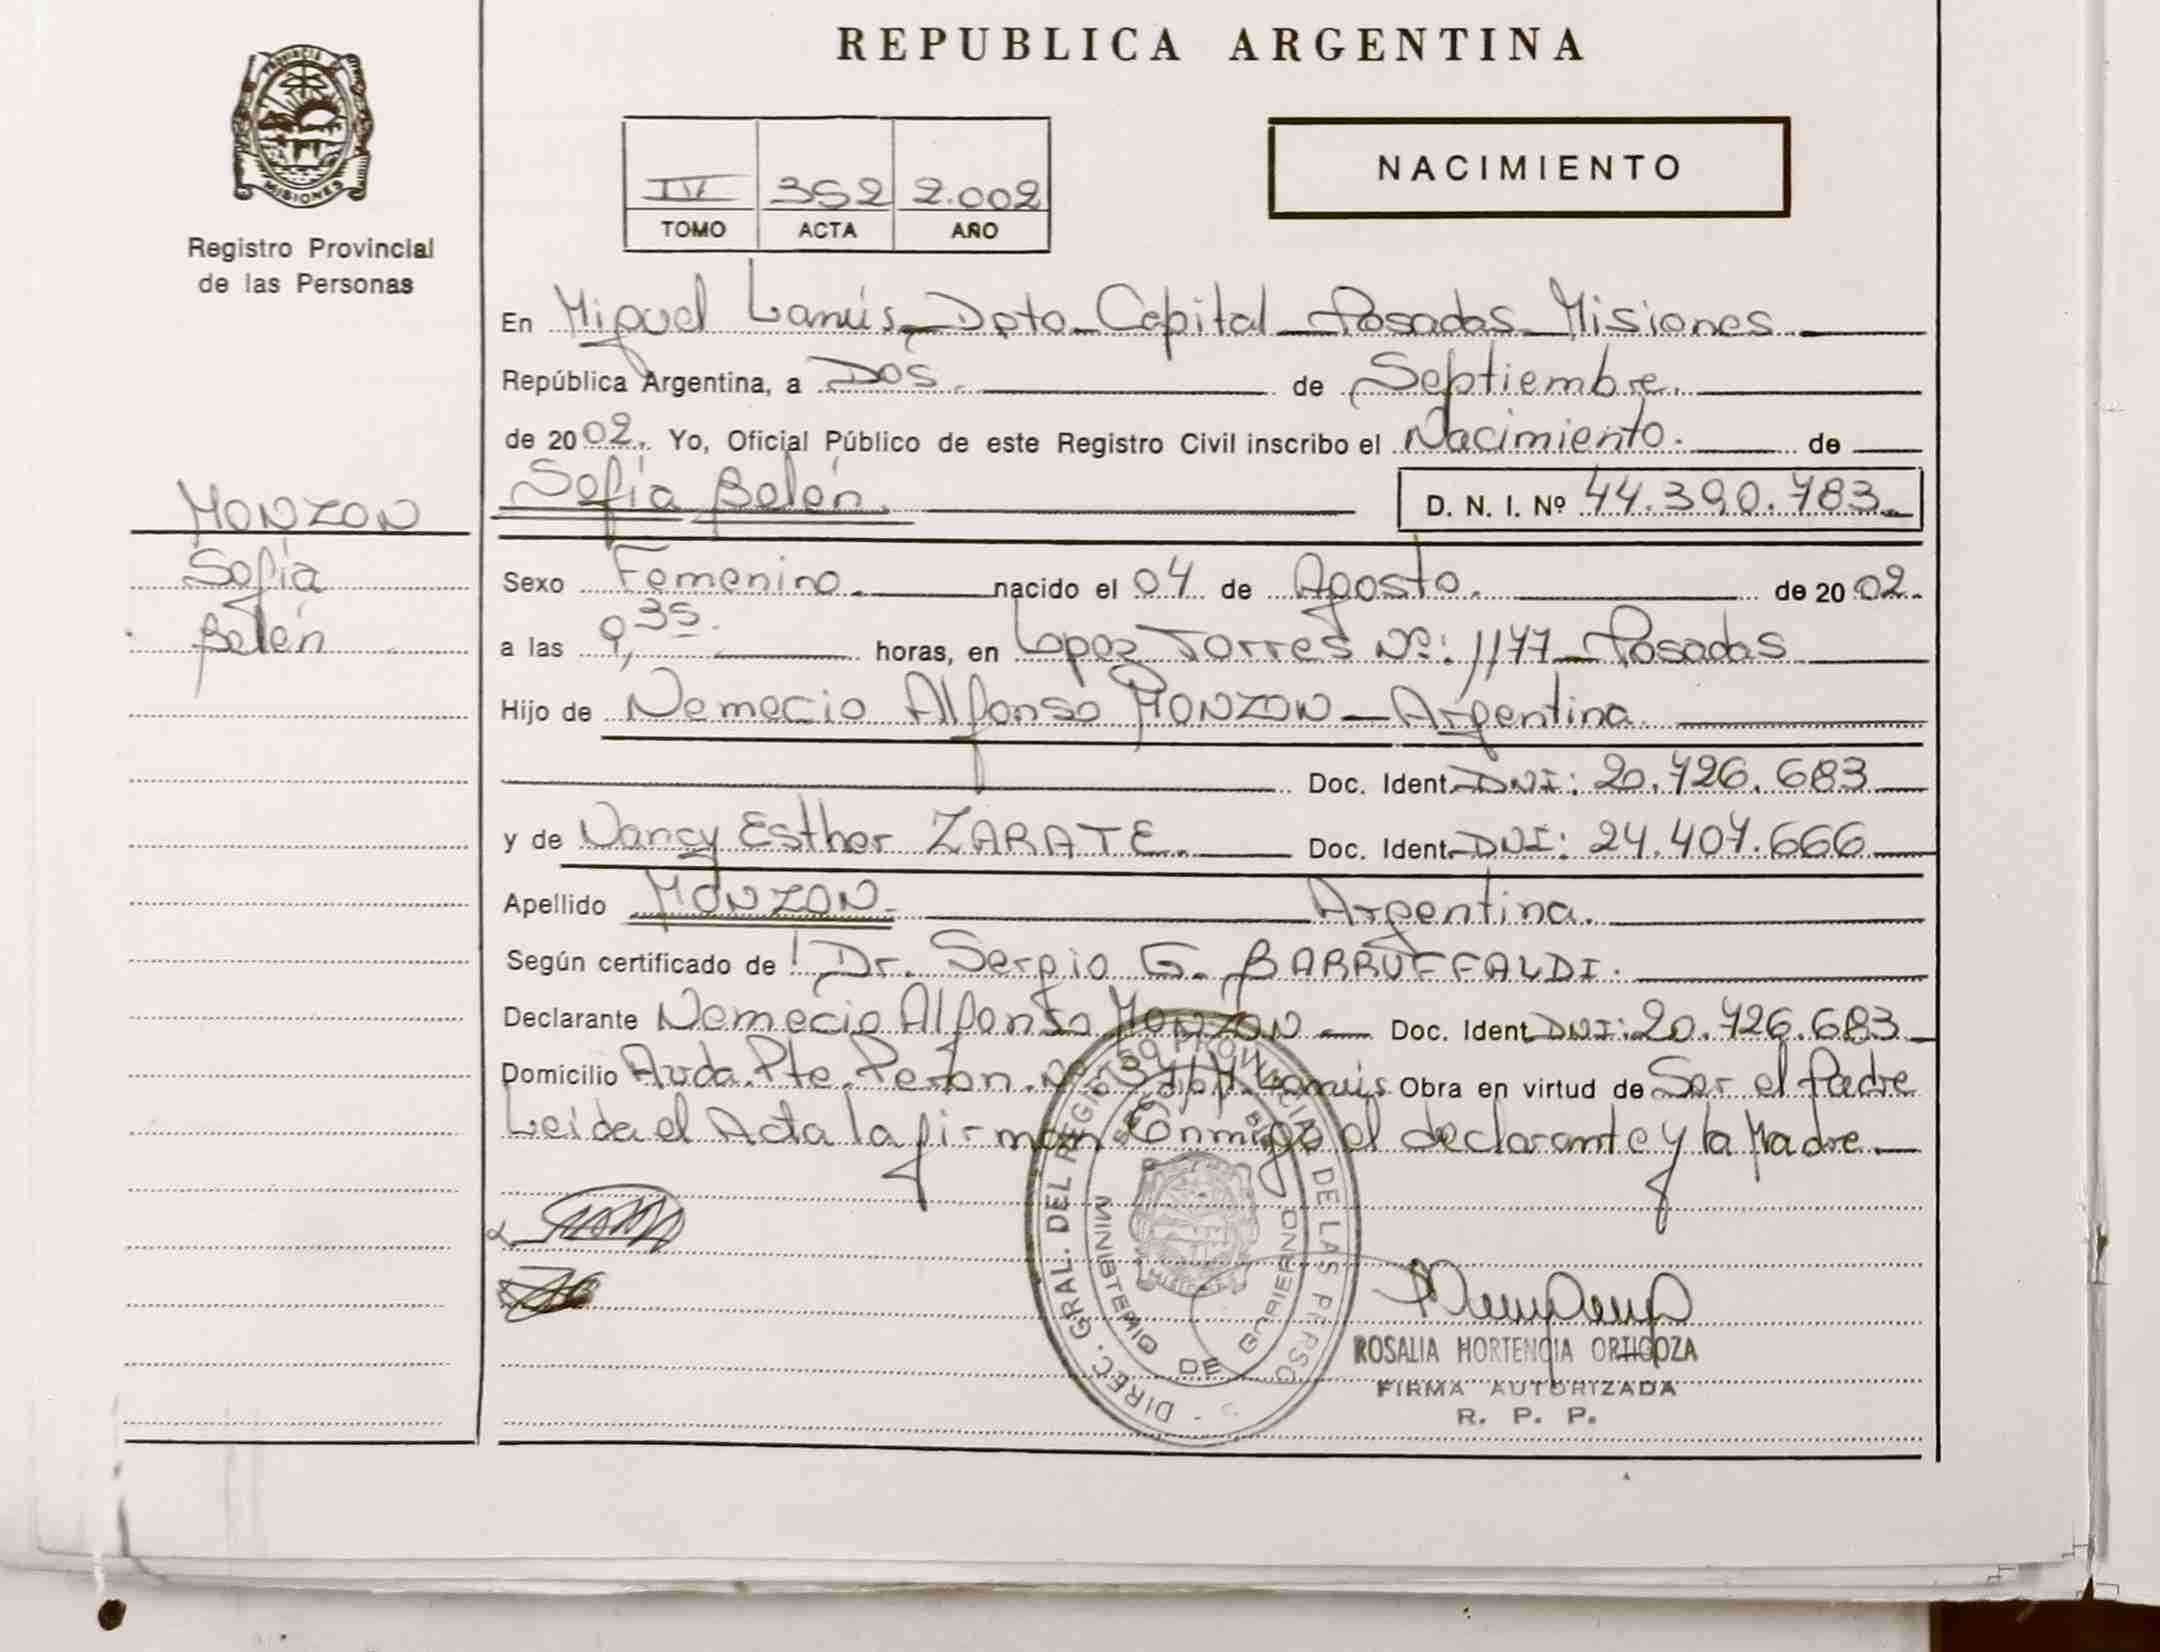 REPUBLICA ARGENTINA
PROVINCIA DE MISIONES
Registro Provincial
de las Personas
IV 352 2.002
TOMO ACTA AÑO
NACIMIENTO
En Miguel Lanús Dpto Capital Posadas Misiones
República Argentina, a Dos. de Septiembre.
de 2002. Yo, Oficial Público de este Registro Civil inscribo el Nacimiento. de
Sofía Belén. D. N. I. Nº 44.390.783
MONZON
Sofía
Belén
Sexo Femenino. nacido el 04 de Agosto. de 2002.
a las 9,35. horas, en Lopez Torres Nº: 1177 Posadas
Hijo de Nemecio Alfonso MONZON - Argentina
Doc. Ident. DNI: 20.726.683
y de Nancy Esther ZARATE. Doc. Ident. DNI: 24.407.666
Apellido MONZON. Argentina.
Según certificado de Dr. Sergio G. BARRUFFALDI.
Declarante Nemecio Alfonso MONZON Doc. Ident. DNI: 20.726.683
Domicilio Avda. Pte. Peron. Lanús Obra en virtud de Ser el Padre
Leida el Acta la firman Conmigo el declarante y la Madre.
DIREC. GRAL. DEL REGISTRO PROVINCIAL DE LAS PERSO
MINISTERIO DE GOBIERNO
ROSALIA HORTENCIA ORTIGOZA
FIRMA AUTORIZADA
R. P. P.